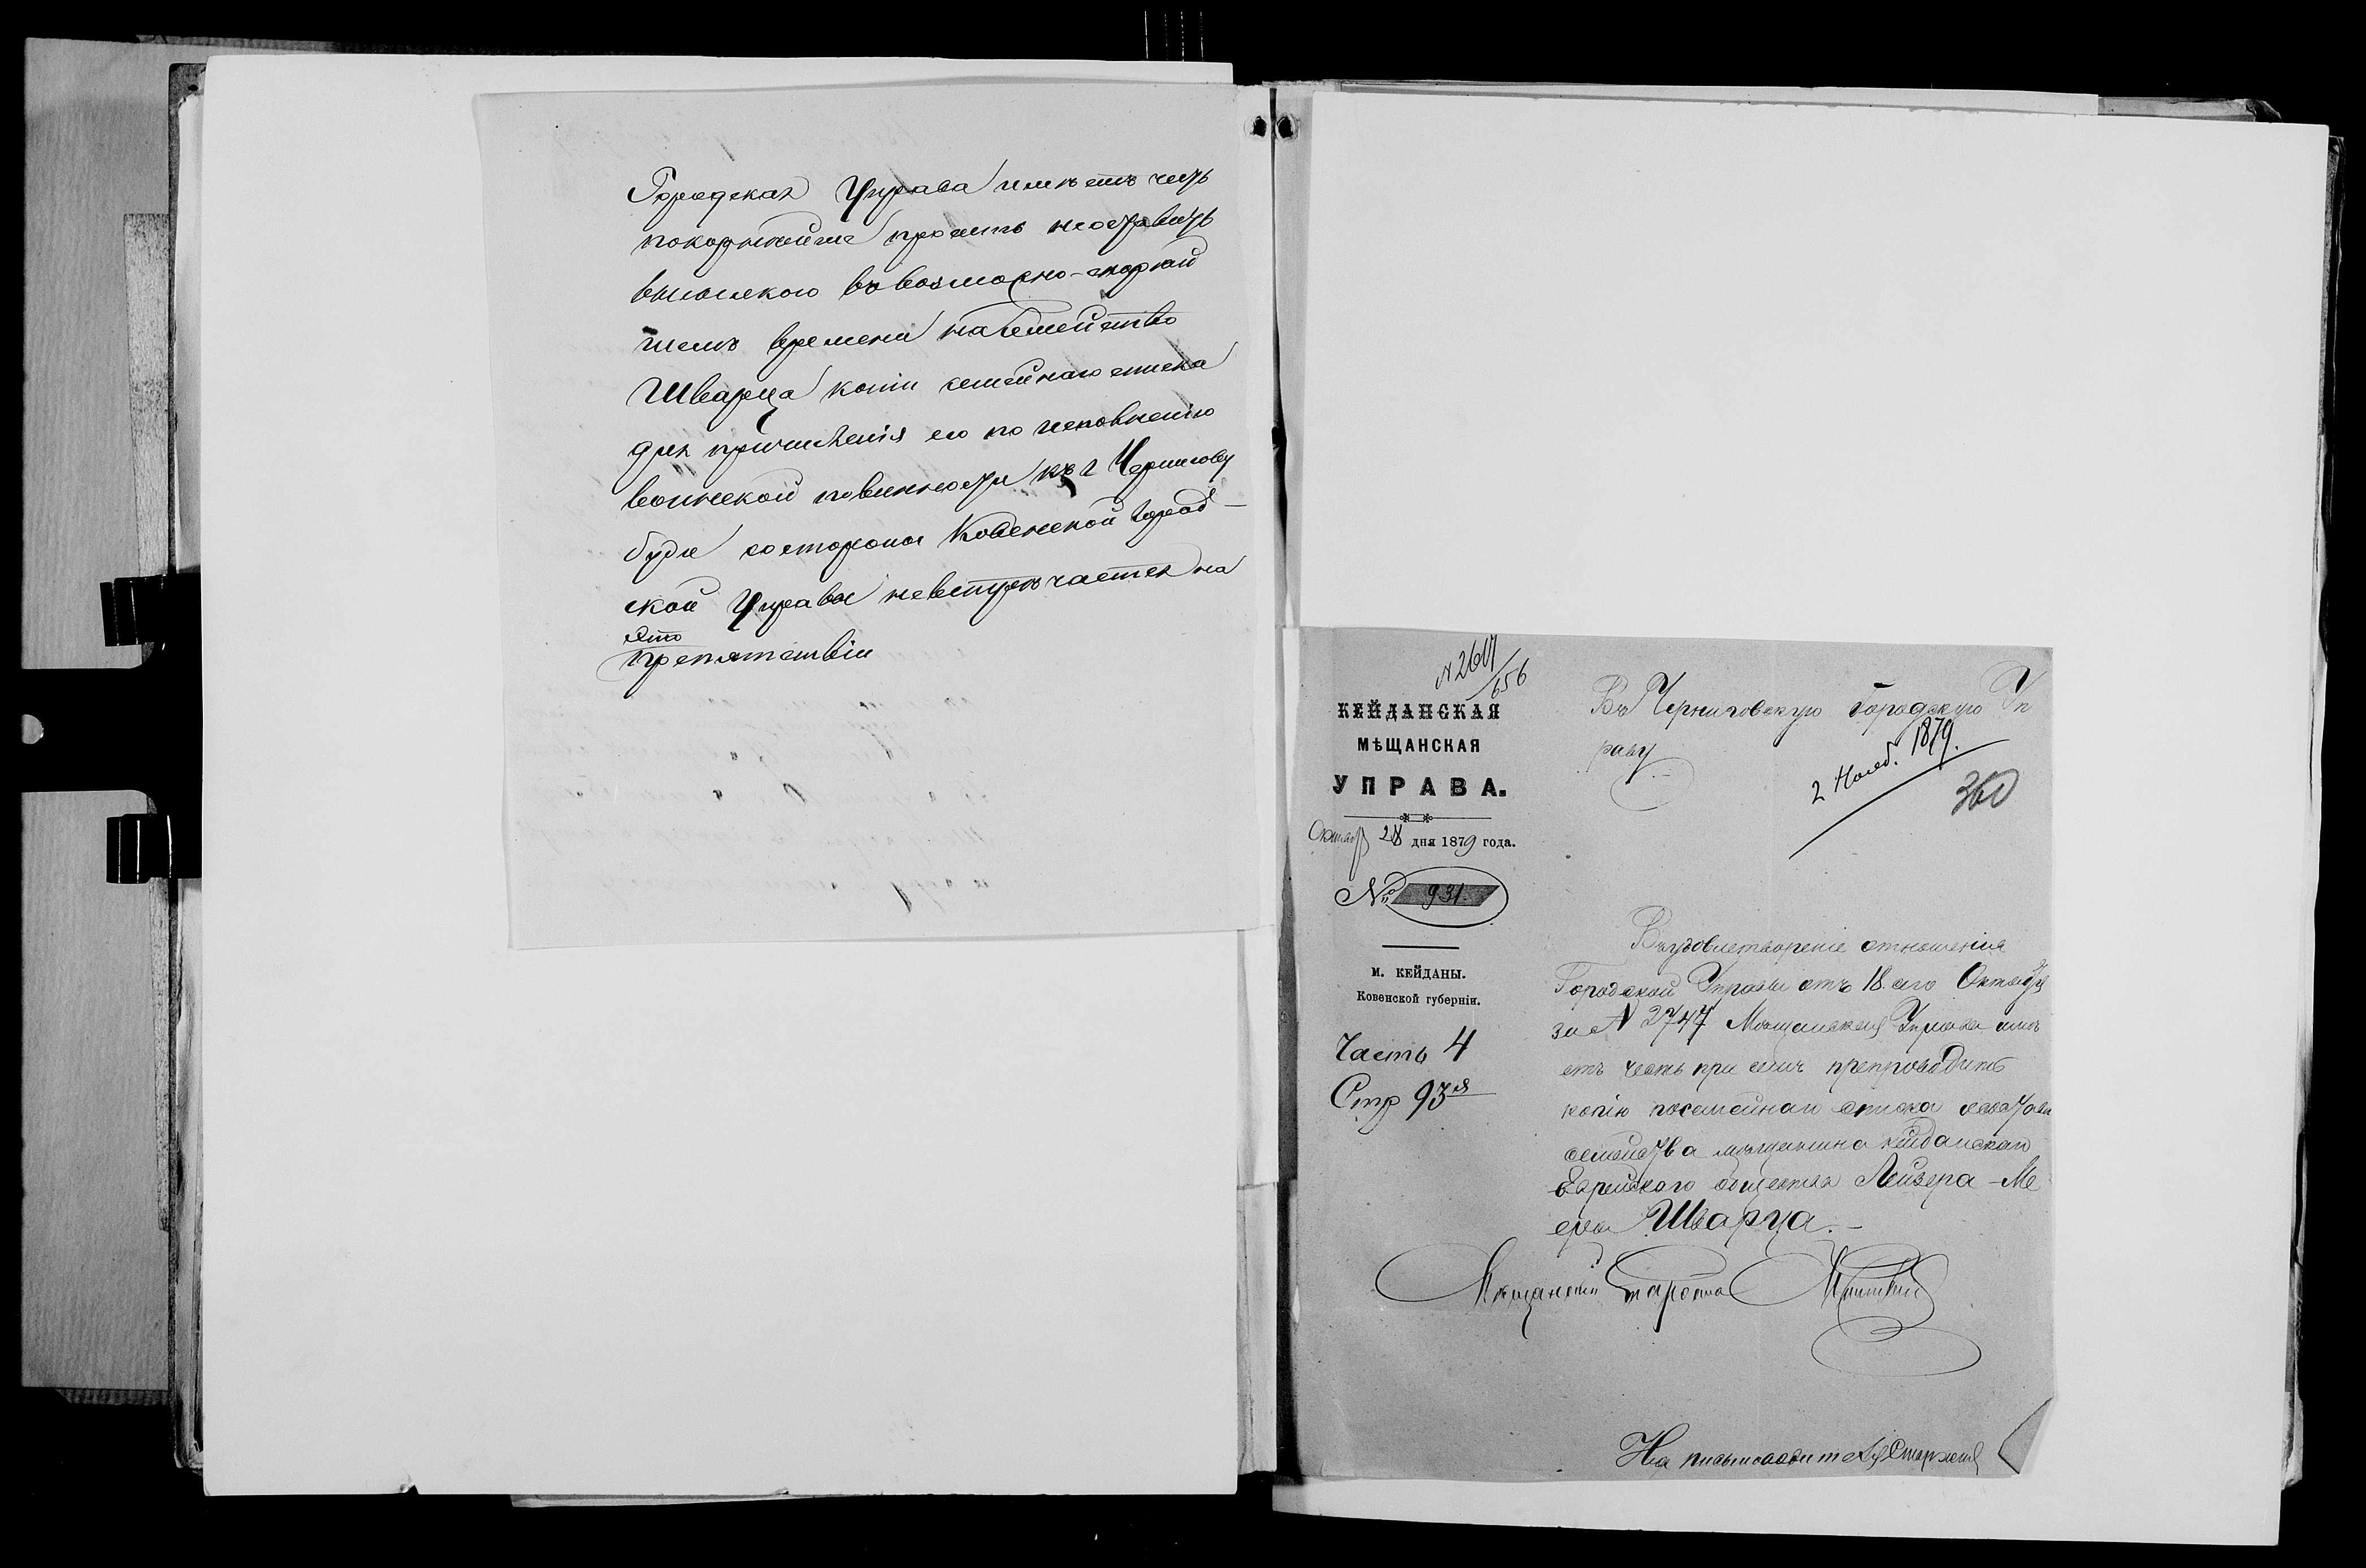 Городская Управа имѣетъ честь
покорнѣйше просить неоставить
высылкою въ возможно-скорѣй
шемъ времени на семейство
Шварца копіи семейнаго списка
для причисленія его по исполненію
воинской повинности къ г Чернигову
буде со стороны Ковенской Город-
ской Управы невстрѣчается на
это
препятствіи
N 2617/656
КЕЙДАНСКАЯ
МѢЩАНСКАЯ
УПРАВА.
Октяб 28 дня 1879 года.
№ 931.
м. КЕЙДАНЫ.
Ковенской губерніи.
Часть 4
Стр 93я
Въ Черниговскую Городскую Уп
раву
2 Нояб. 1879.
360
Въ удовлетвореніе отношенія
Городской Управы отъ 18.его Октября
за N 2747 Мѣщанская Управа имѣ
етъ честь при семъ препроводить
копію посемейнаго списка
семейства мѣщанина Кейданскаго
Еврейскаго общества Лейзера-Ме
ера Шварца.-
Мѣщанскій Староста
На письмоводителя